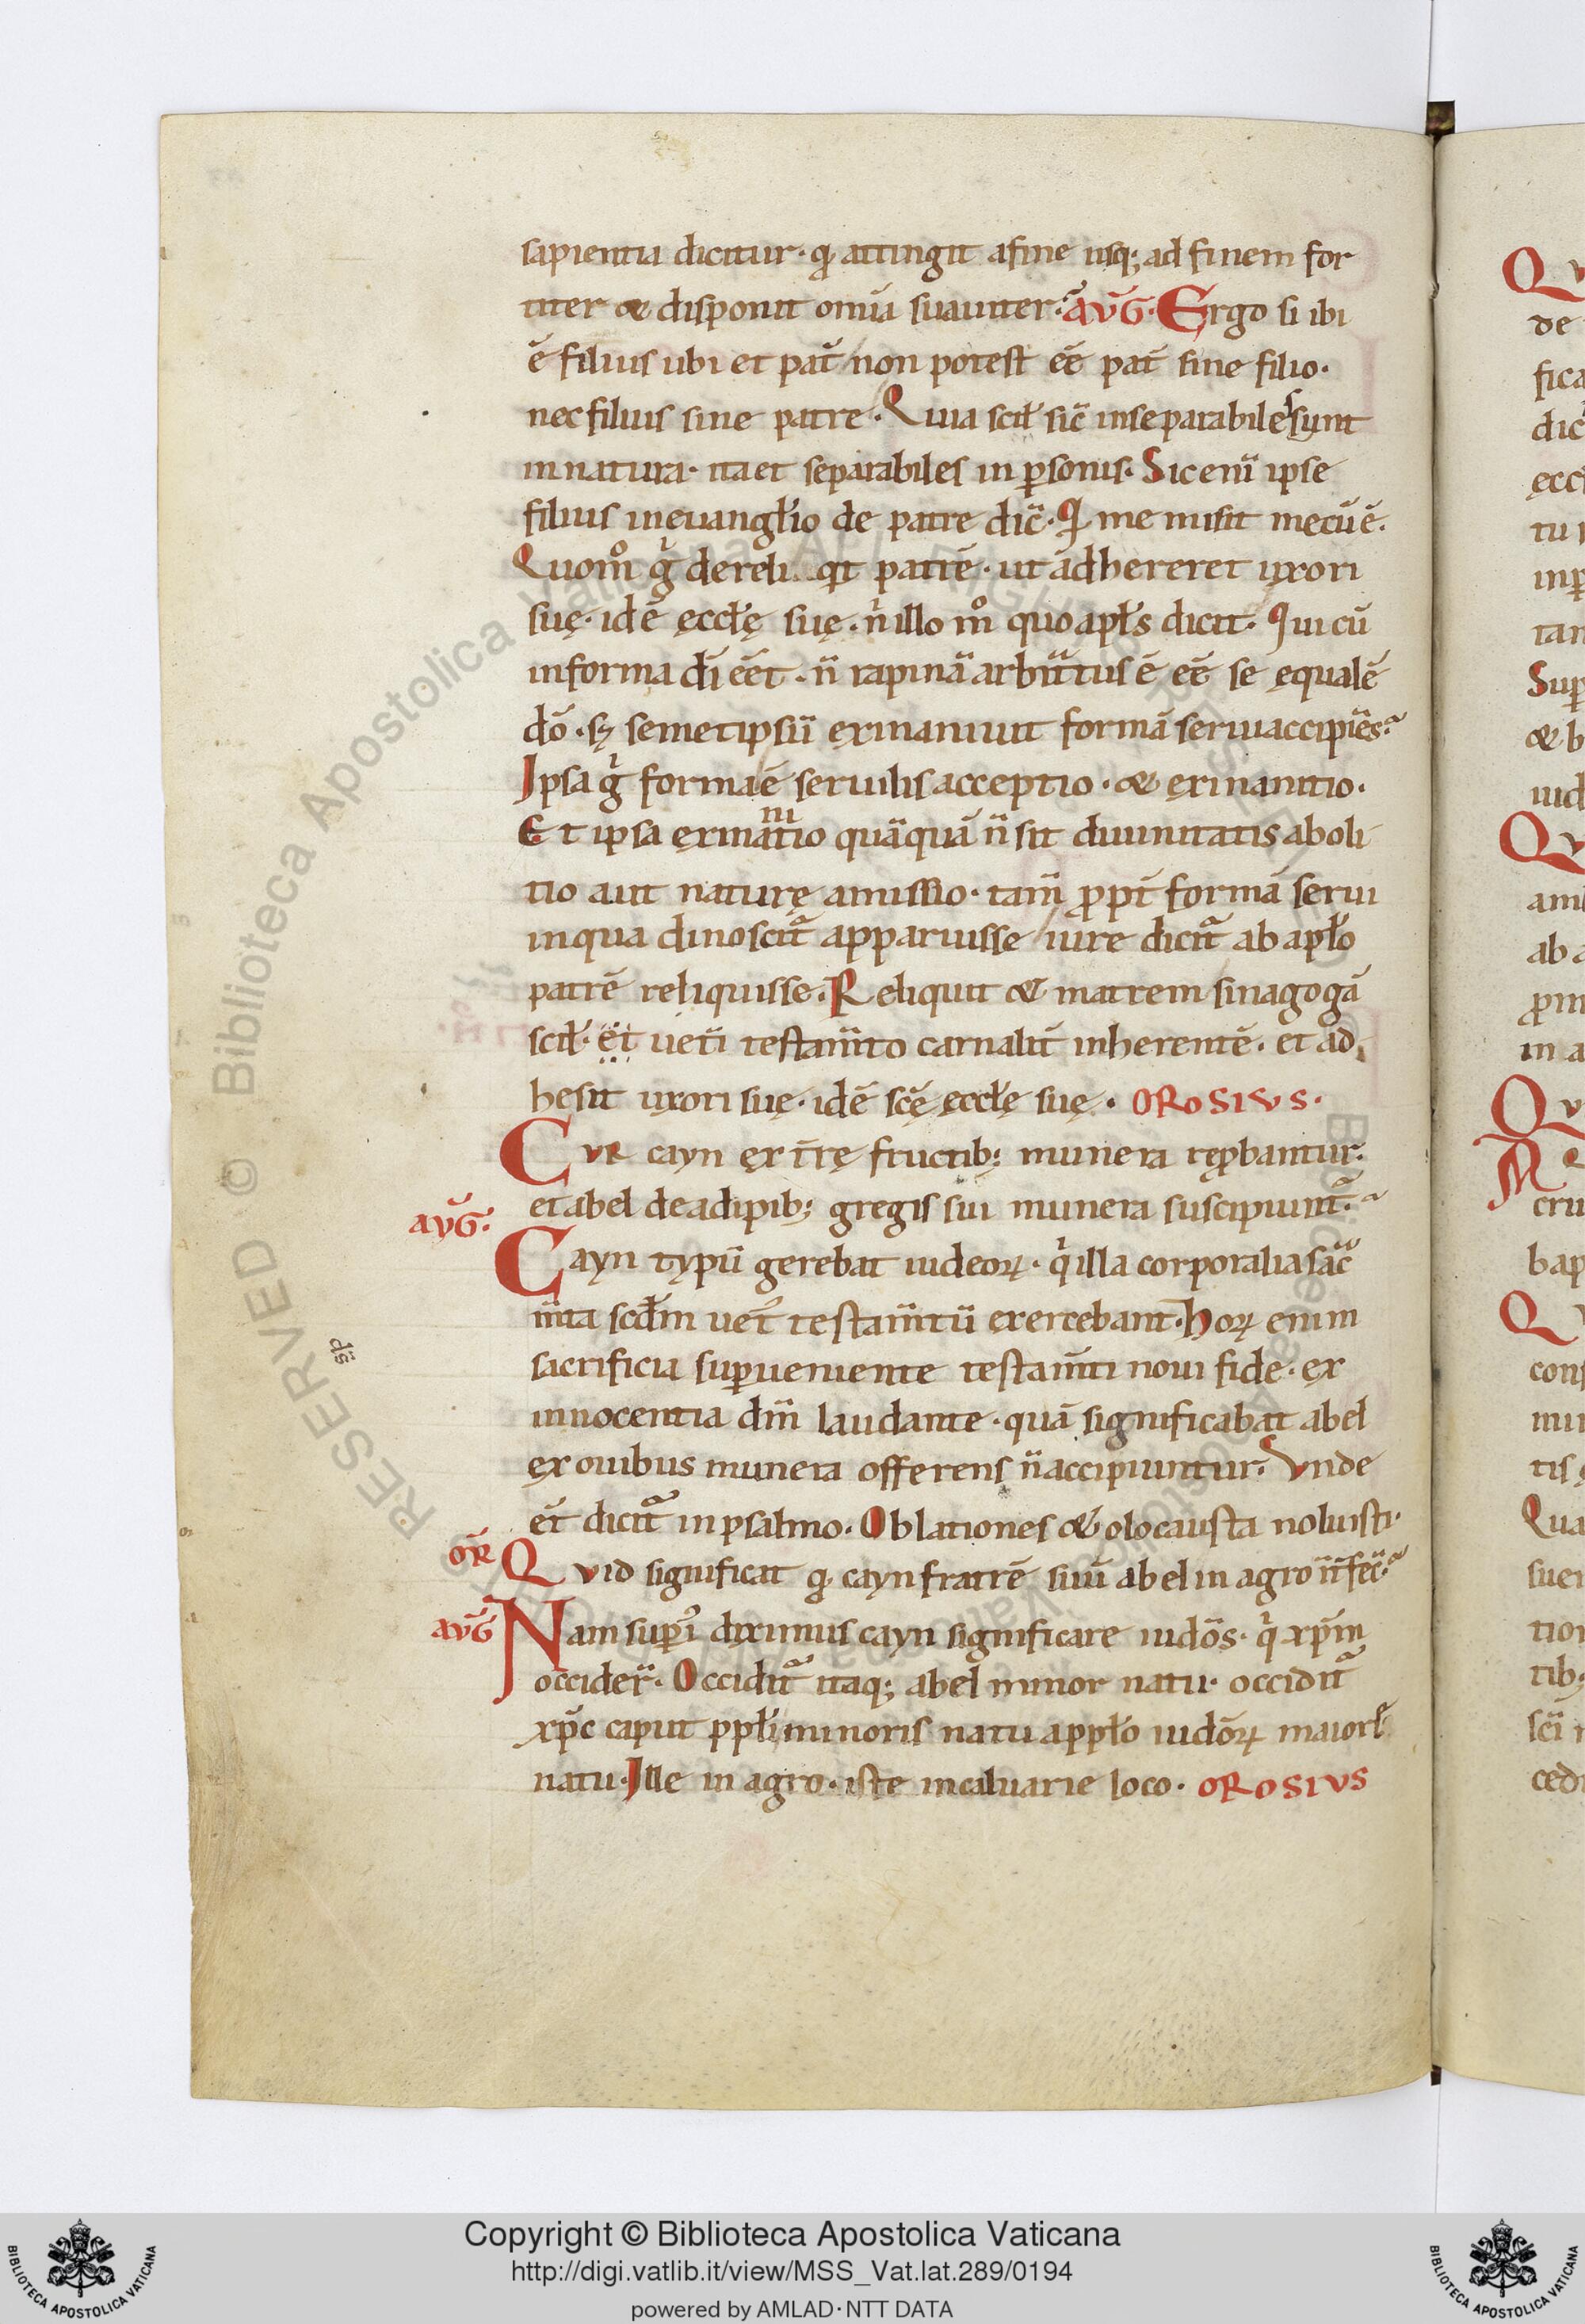 sapientia dicitur · ꝙ attingit afine usq; ad finem for
titer & disponit omīa suauiter. AVḠ · Ergo si ibi
ē filius ubi et pat̄ non potest eē pat̄ sine filio ·
nec filius sine patre · Quia scił sic̄ inseparabiles sunt
in natura · ita et separabiles in ꝑsonis · Sic enī ipse
filius in euangłio de patre dic̄ · Qi me misit mecū ē.
Quom̊ gͥ dereliqͥt patrē · ut adhereret uxori
suę · id ē ecclę suę · nͥ illo m̊ quo apłs dicit · Qui cū
in forma dī eēt · n̄ rapinā arbit̄tus ē eē se equalē
dō · sꝫ semetipsū exinaniuit formā serui accipiēs.
Ipsa gͥ forma ē seruilis acceptio · & exinanitio ·
Et ipsa exinanitio quāquā n̄ sit diuinitatis aboli
tio aut naturę amissio · tam̄ ꝓpt̄ formā serui
in qua dinoscit᷑ apparuisse iure dicit᷑ ab apło
patrē reliquisse · Reliquit & matrem sinagogā
scił · et uet̄i testam̄to carnalit̄ inherentē · et ad
hesit uxori suę · id ē scē ecclę suę · OROSIVS ·
CVR cayn ex t̄rę fructib; munera reꝓbantur ·
et abel de adipib; gregis sui munera suscipiunt᷑.
AVḠ ·
Cayn typū gerebat iudeoꝝ · qͥ illa corporalia sac̄
m̄ta scd̄m uet̄ testam̄tū exercebant · Hoꝝ enim
sacrificia suꝑueniente testam̄ti noui fide · ex
innocentia dm̄ laudante · quā significabat abel
ds̄
ex ouibus munera offerens n̄ accipiuntur · Vnde
et̄ dicit᷑ in psalmo · Oblationes & olocausta noluisti ·
OR̄
Qvid significat ꝙ cayn fratrē suū abel in agro int̄fec̄.
AVḠ
Nam suꝑͥ diximus cayn significare iudōs · qͥ xp̄m
occider̄ · Occidit᷑ itaq; abel minor natu · occidit᷑
xp̄c caput ppłi minoris natu a ppło iudōꝝ maiorͥ
natu · Ille in agro · iste in caluarie loco · OROSIVS
Copyright © Biblioteca Apostolica Vaticana
http://digi.vatlib.it/view/MSS_Vat.lat.289/0194
powered by AMLAD · NTT DATA
BIBLIOTECA APOSTOLICA VATICANA
BIBLIOTECA APOSTOLICA VATICANA